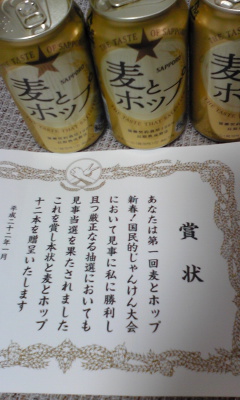 THE TASTE OF
SAPPORO
麦と
ホップ
THE TASTE OF
SAPPORO
麦と
ホップ
麦
ホップ
賞状
あなたは第一回麦とホップ
新春！国民的じゃんけん大会
において見事に私に勝利し
且つ厳正なる抽選においても
見事当選を果たされました
これを賞し本状と麦とホップ
十二本を贈呈いたします
平成二十二年一月